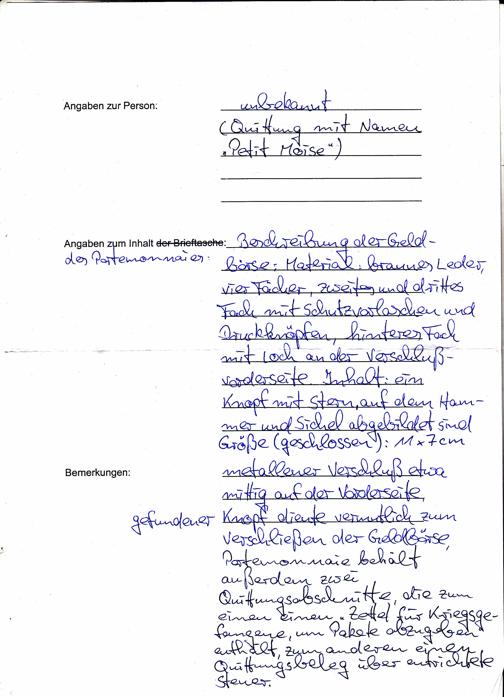 Angaben zur Person: unbekannt
(Quittung mit Namen
„Petit Moise")
Angaben zum Inhalt der Brieftasche: Beschreibung der Geld-
des Portemonnaies:
börse: Material: braunes Leder,
vier Fächer, zweites und drittes
Fach mit Schutzvorlaschen und
Druckknöpfen, hinteres Fach
mit Loch an der Verschluß-
vorderseite. Inhalt: ein
Knopf mit Stern, auf dem Ham-
mer und Sichel abgebildet sind
Größe (geschlossen): 11 x 7 cm
Bemerkungen: metallener Verschluß etwa
mittig auf der Vorderseite,
gefundener Knopf diente vermutlich zum
Verschließen der Geldbörse,
Portemonnaie behält
außerdem zwei
Quittungsabschnitte, die zum
einen einen „Zettel für Kriegsge-
fangene, um Pakete abzugeben"
enthält, zum anderen einen
Quittungsbeleg über entrichtete
Steuer.